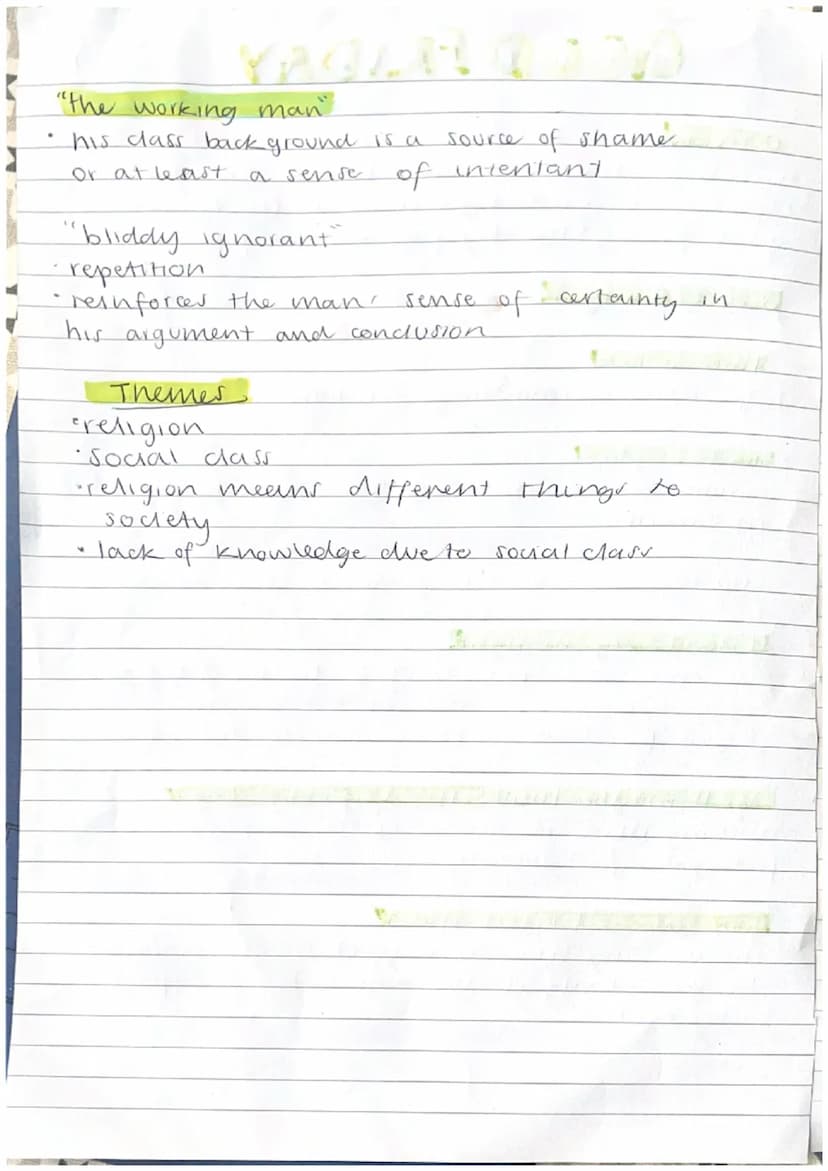 "the working man"
• his class background is a source of shame
or at least a sense of
"bliddy ignorant"
• repetition
• reinforces the mans sense of certainty in
his argument and conclusion
Themes
• religion
• social class
• religion means different things to
society
• lack of knowledge due to social class